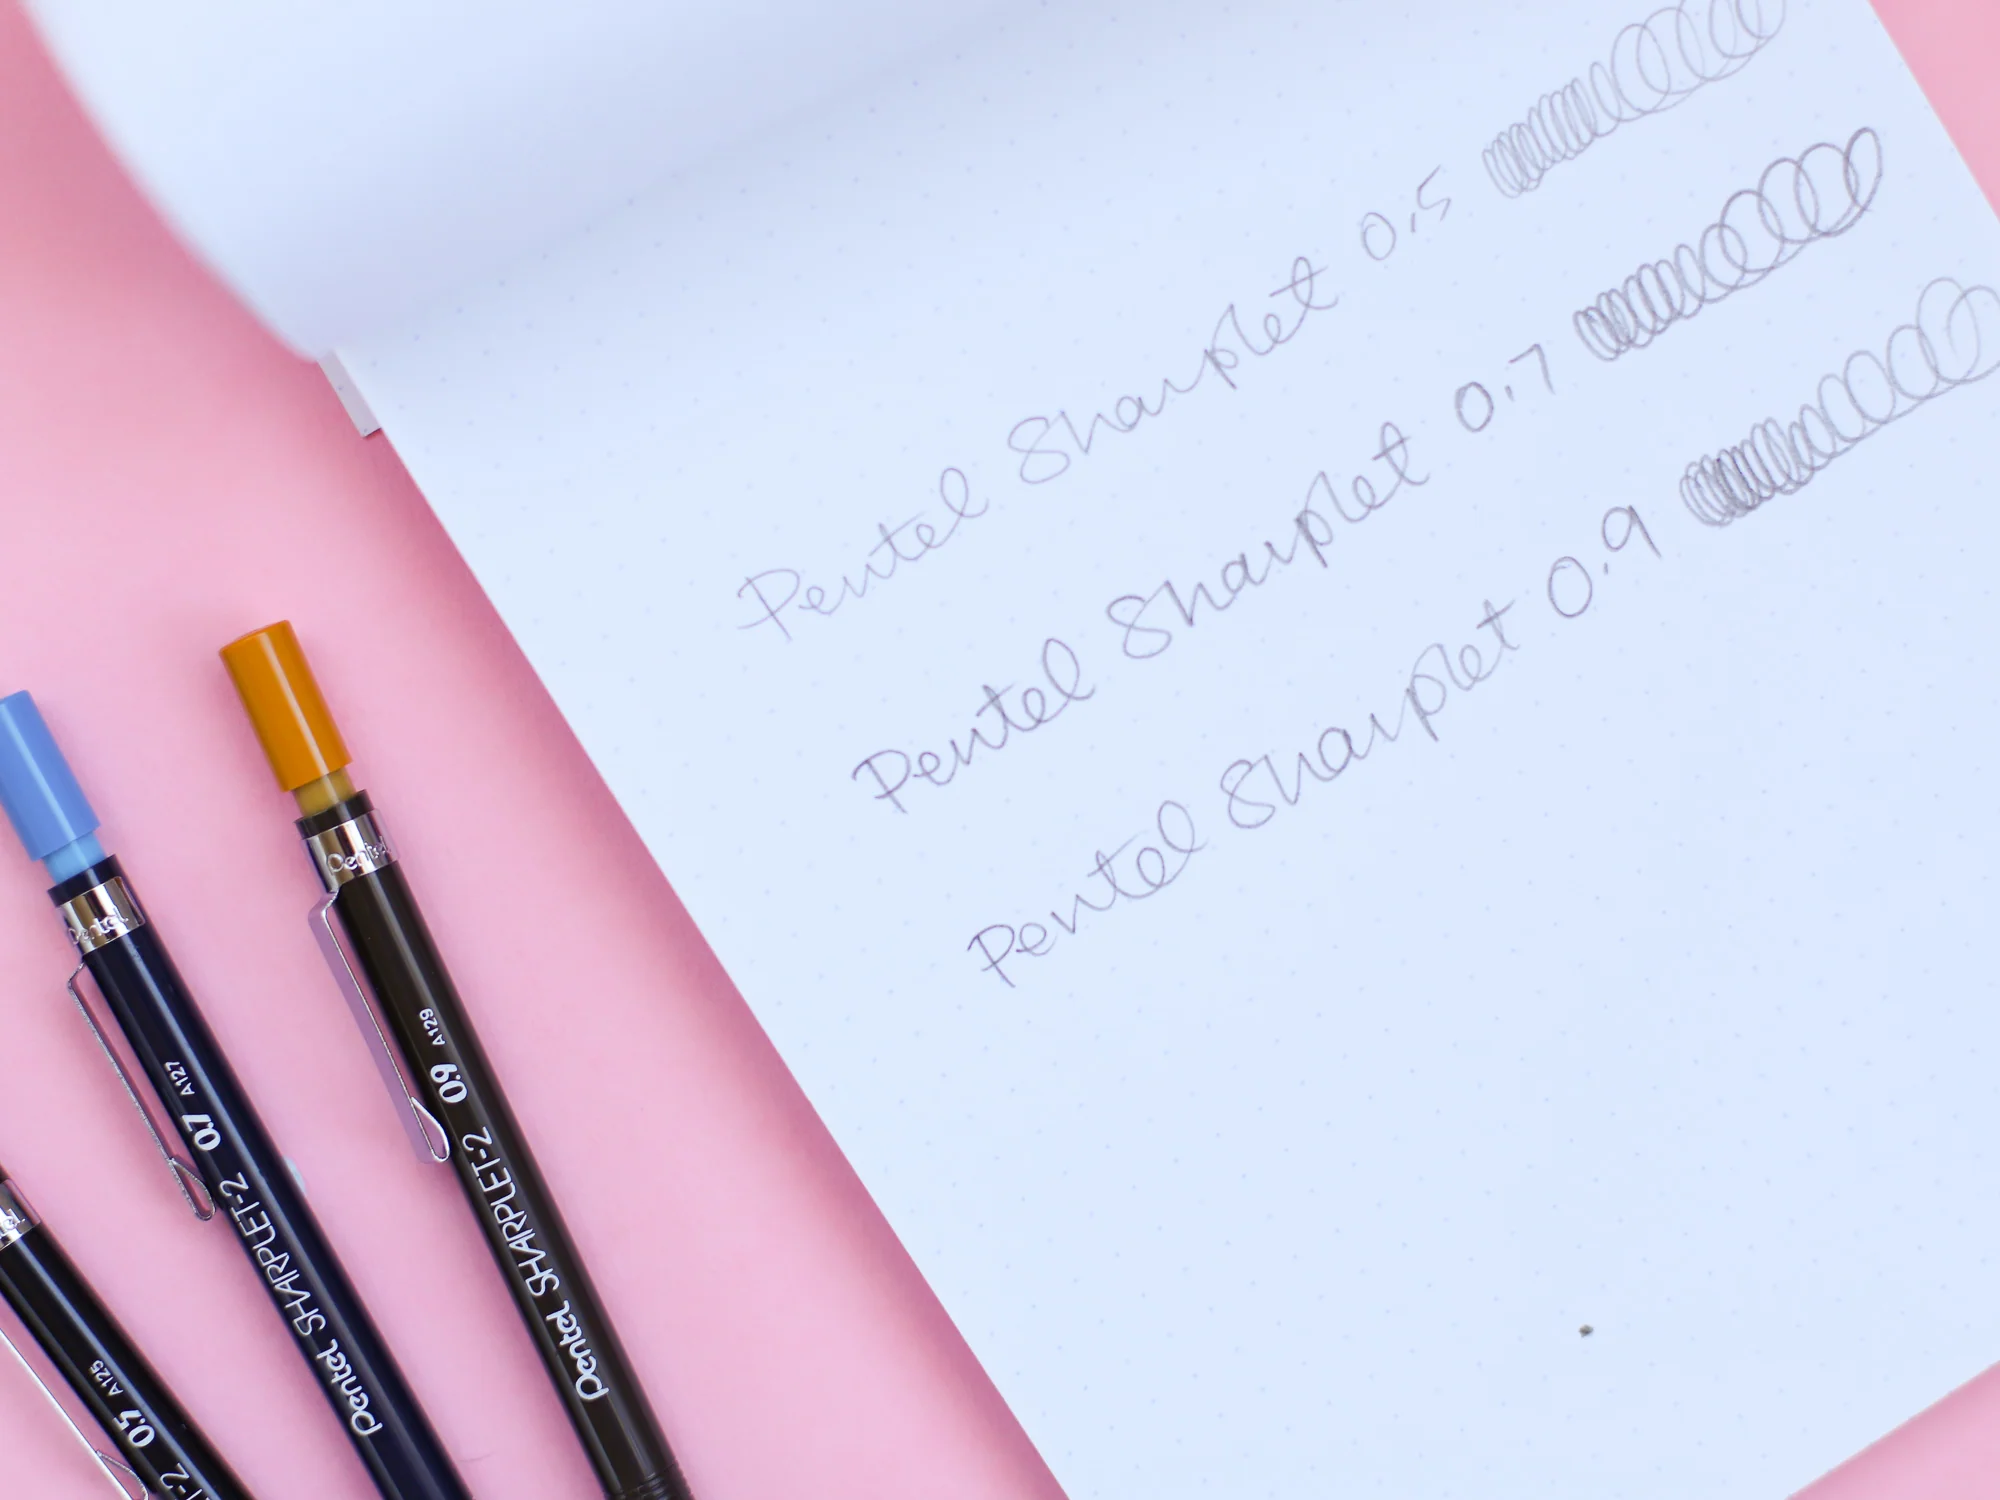 Pentel Sharplet 0.5
Pentel Sharplet 0.7
Pentel Sharplet 0.9
Pentel
Pentel SHARPLET-2 0.9 A129
Pentel
Pentel SHARPLET-2 0.7 A127
T-2 0.5 A125